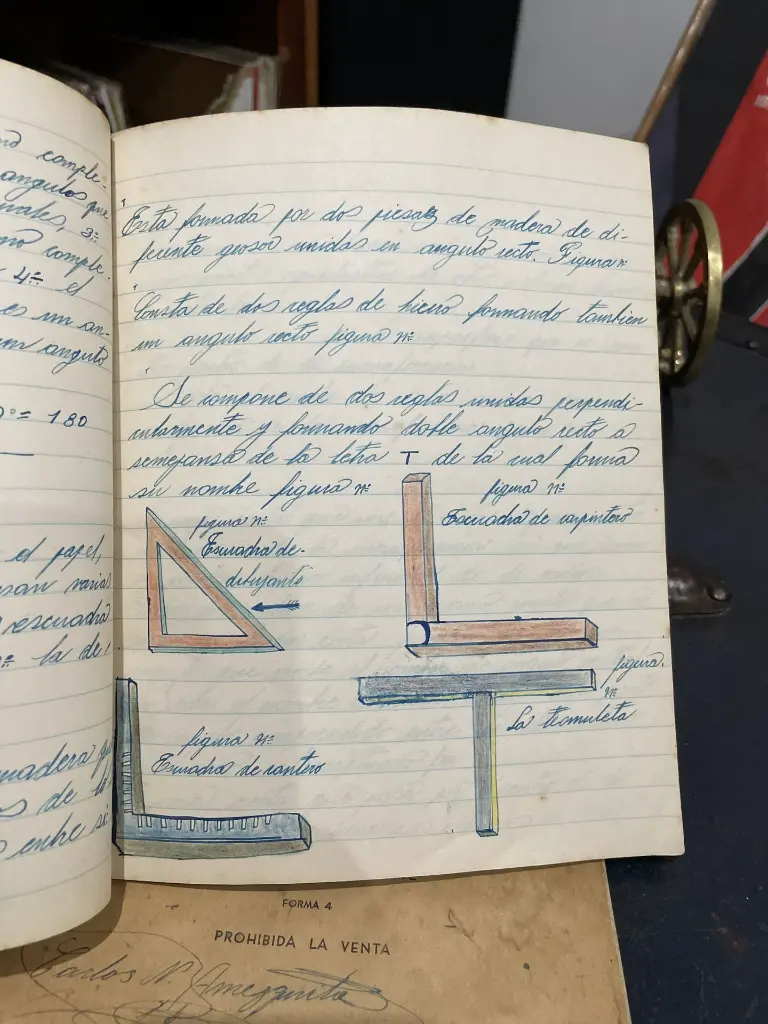 no comple-
angulos que
3º
no comple-
4º el
es un an-
un angulo
0º = 180
el papel,
usan varias
escuadra
la de
madera y
s de la
entre si
Esta formada por dos piesas de madera de di-
ferente grosor unidas en angulo recto. Figura nº
Consta de dos reglas de hierro formando tambien
un angulo recto figura nº
Se compone de dos reglas unidas perpendi-
cularmente y formando doble angulo recto a
semejansa de la letra T de la cual forma
su nombre figura nº
figura nº
Escuadra de
dibujante
figura nº
Escuadra de carpintero
figura nº
Escuadra de cantero
figura.
nº
La tramuleta
FORMA 4
PROHIBIDA LA VENTA
Carlos N.